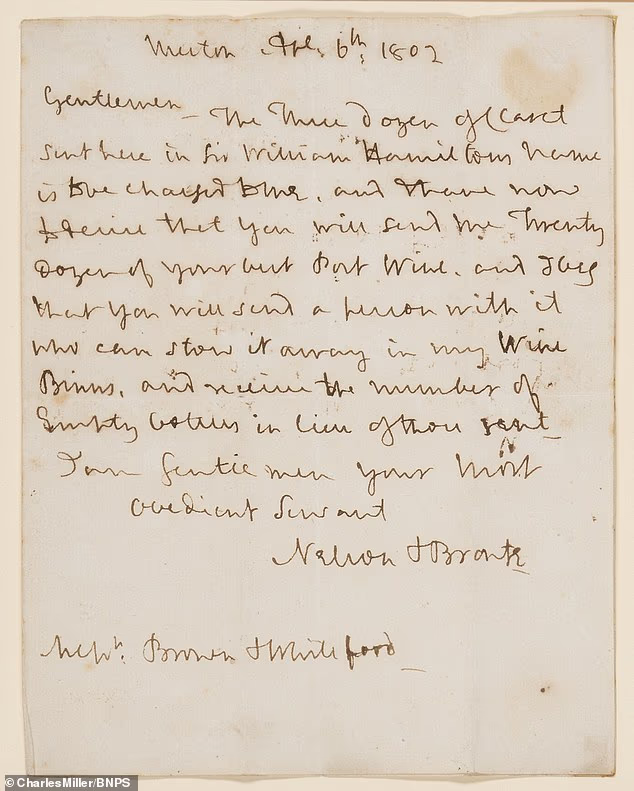 Merton Apl. 6th. 1802
Gentlemen - The Three Dozen of Claret
sent here in Sir William Hamiltons Name
is to be charged to me, and I have now
to desire that you will send me Twenty
Dozen of your best Port Wine. and I beg
that you will send a person with it
who can stow it away in my Wine
Binns, and receive the number of
Empty bottles in lieu of those sent
I am Gentlemen your most
obedient Servant
Nelson & Bronte
Messrs. Brown & Whiteford
©CharlesMiller/BNPS